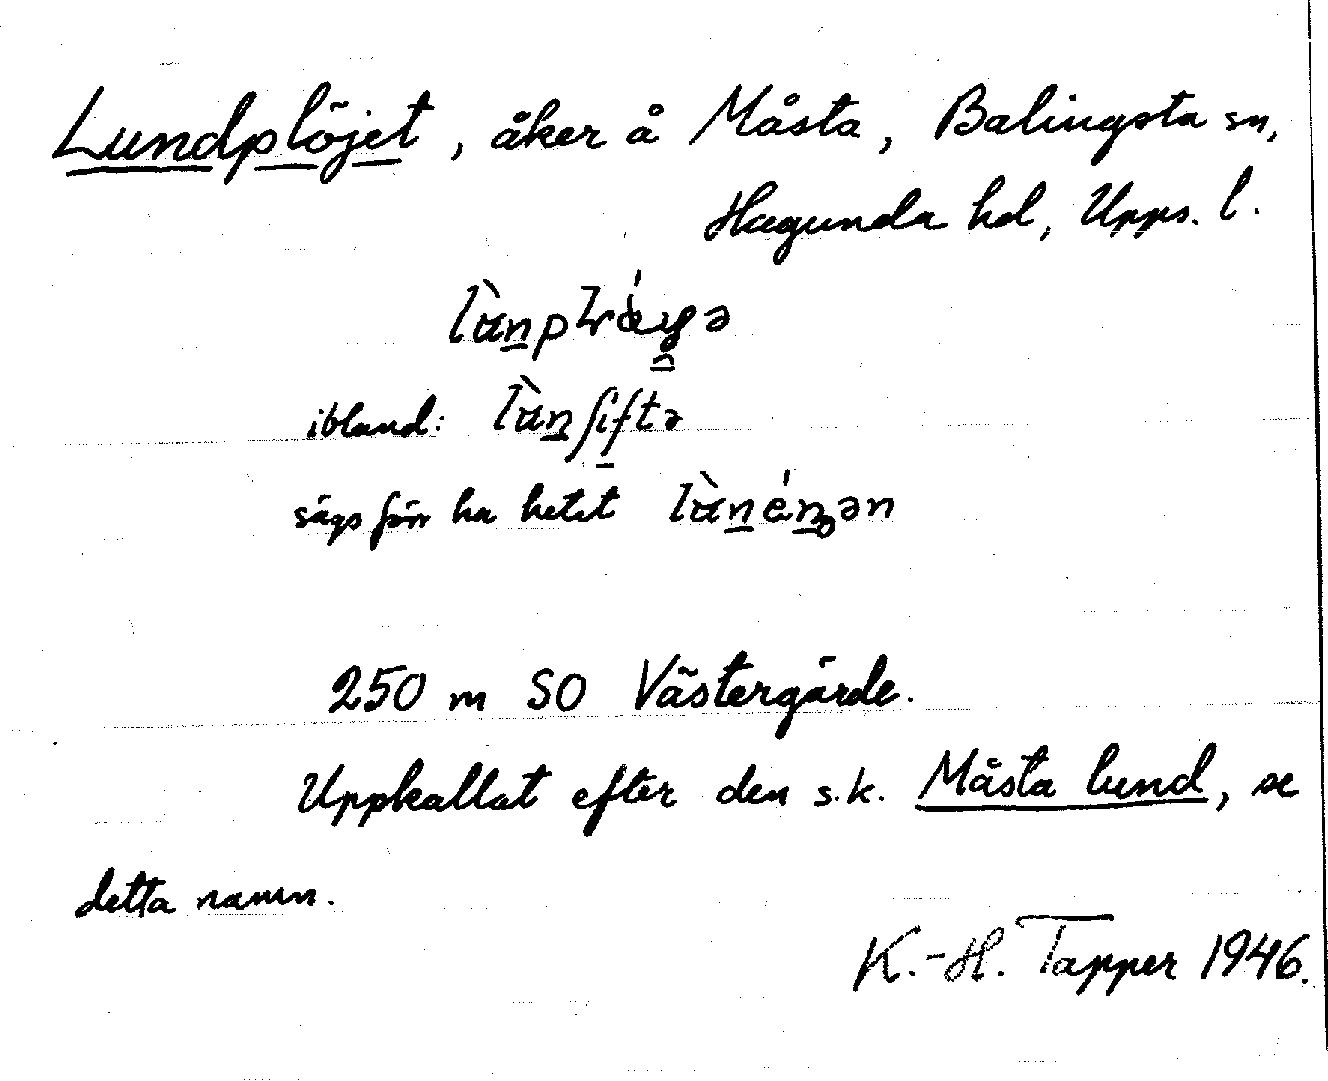 Lundplöjet, åker å Måsta, Balingsta sn,
Hagunda hd, Upps. l.
ibland:
sägs förr ha hetat
250 m SO Västergärde.
Uppkallat efter den s.k. Måsta lund, se
detta namn.
K.-H. Tapper 1946.